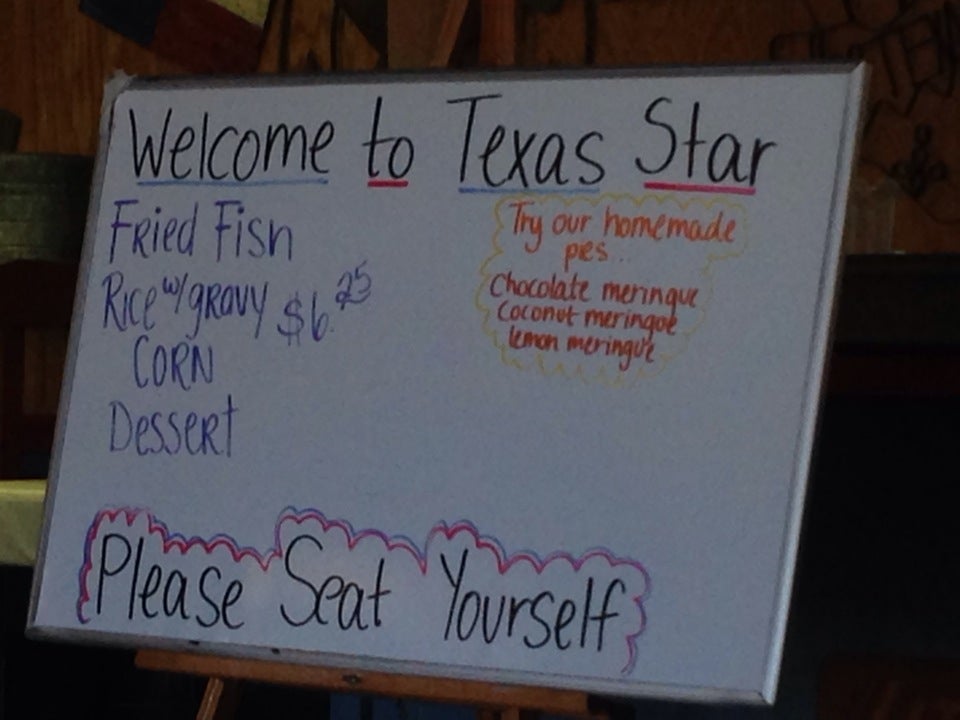 Welcome to Texas Star
Fried Fish
Rice w/ gravy $6.25
CORN
Dessert
Try our homemade
pies...
Chocolate meringue
Coconut meringue
lemon meringue
Please Seat Yourself